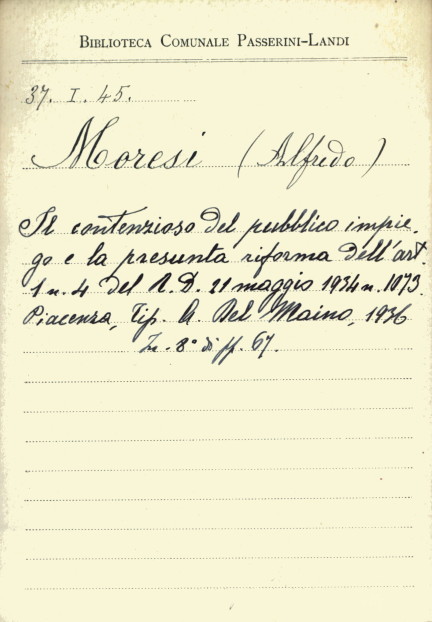 BIBLIOTECA COMUNALE PASSERINI-LANDI
37. I. 45.
Moresi (Alfredo)
Il contenzioso del pubblico impie-
go e la presunta riforma dell'art.
1 n. 4 del R. D. 21 maggio 1934 n. 1073.
Piacenza, Tip. A. Del Maino, 1936
In-8° di pp. 67.